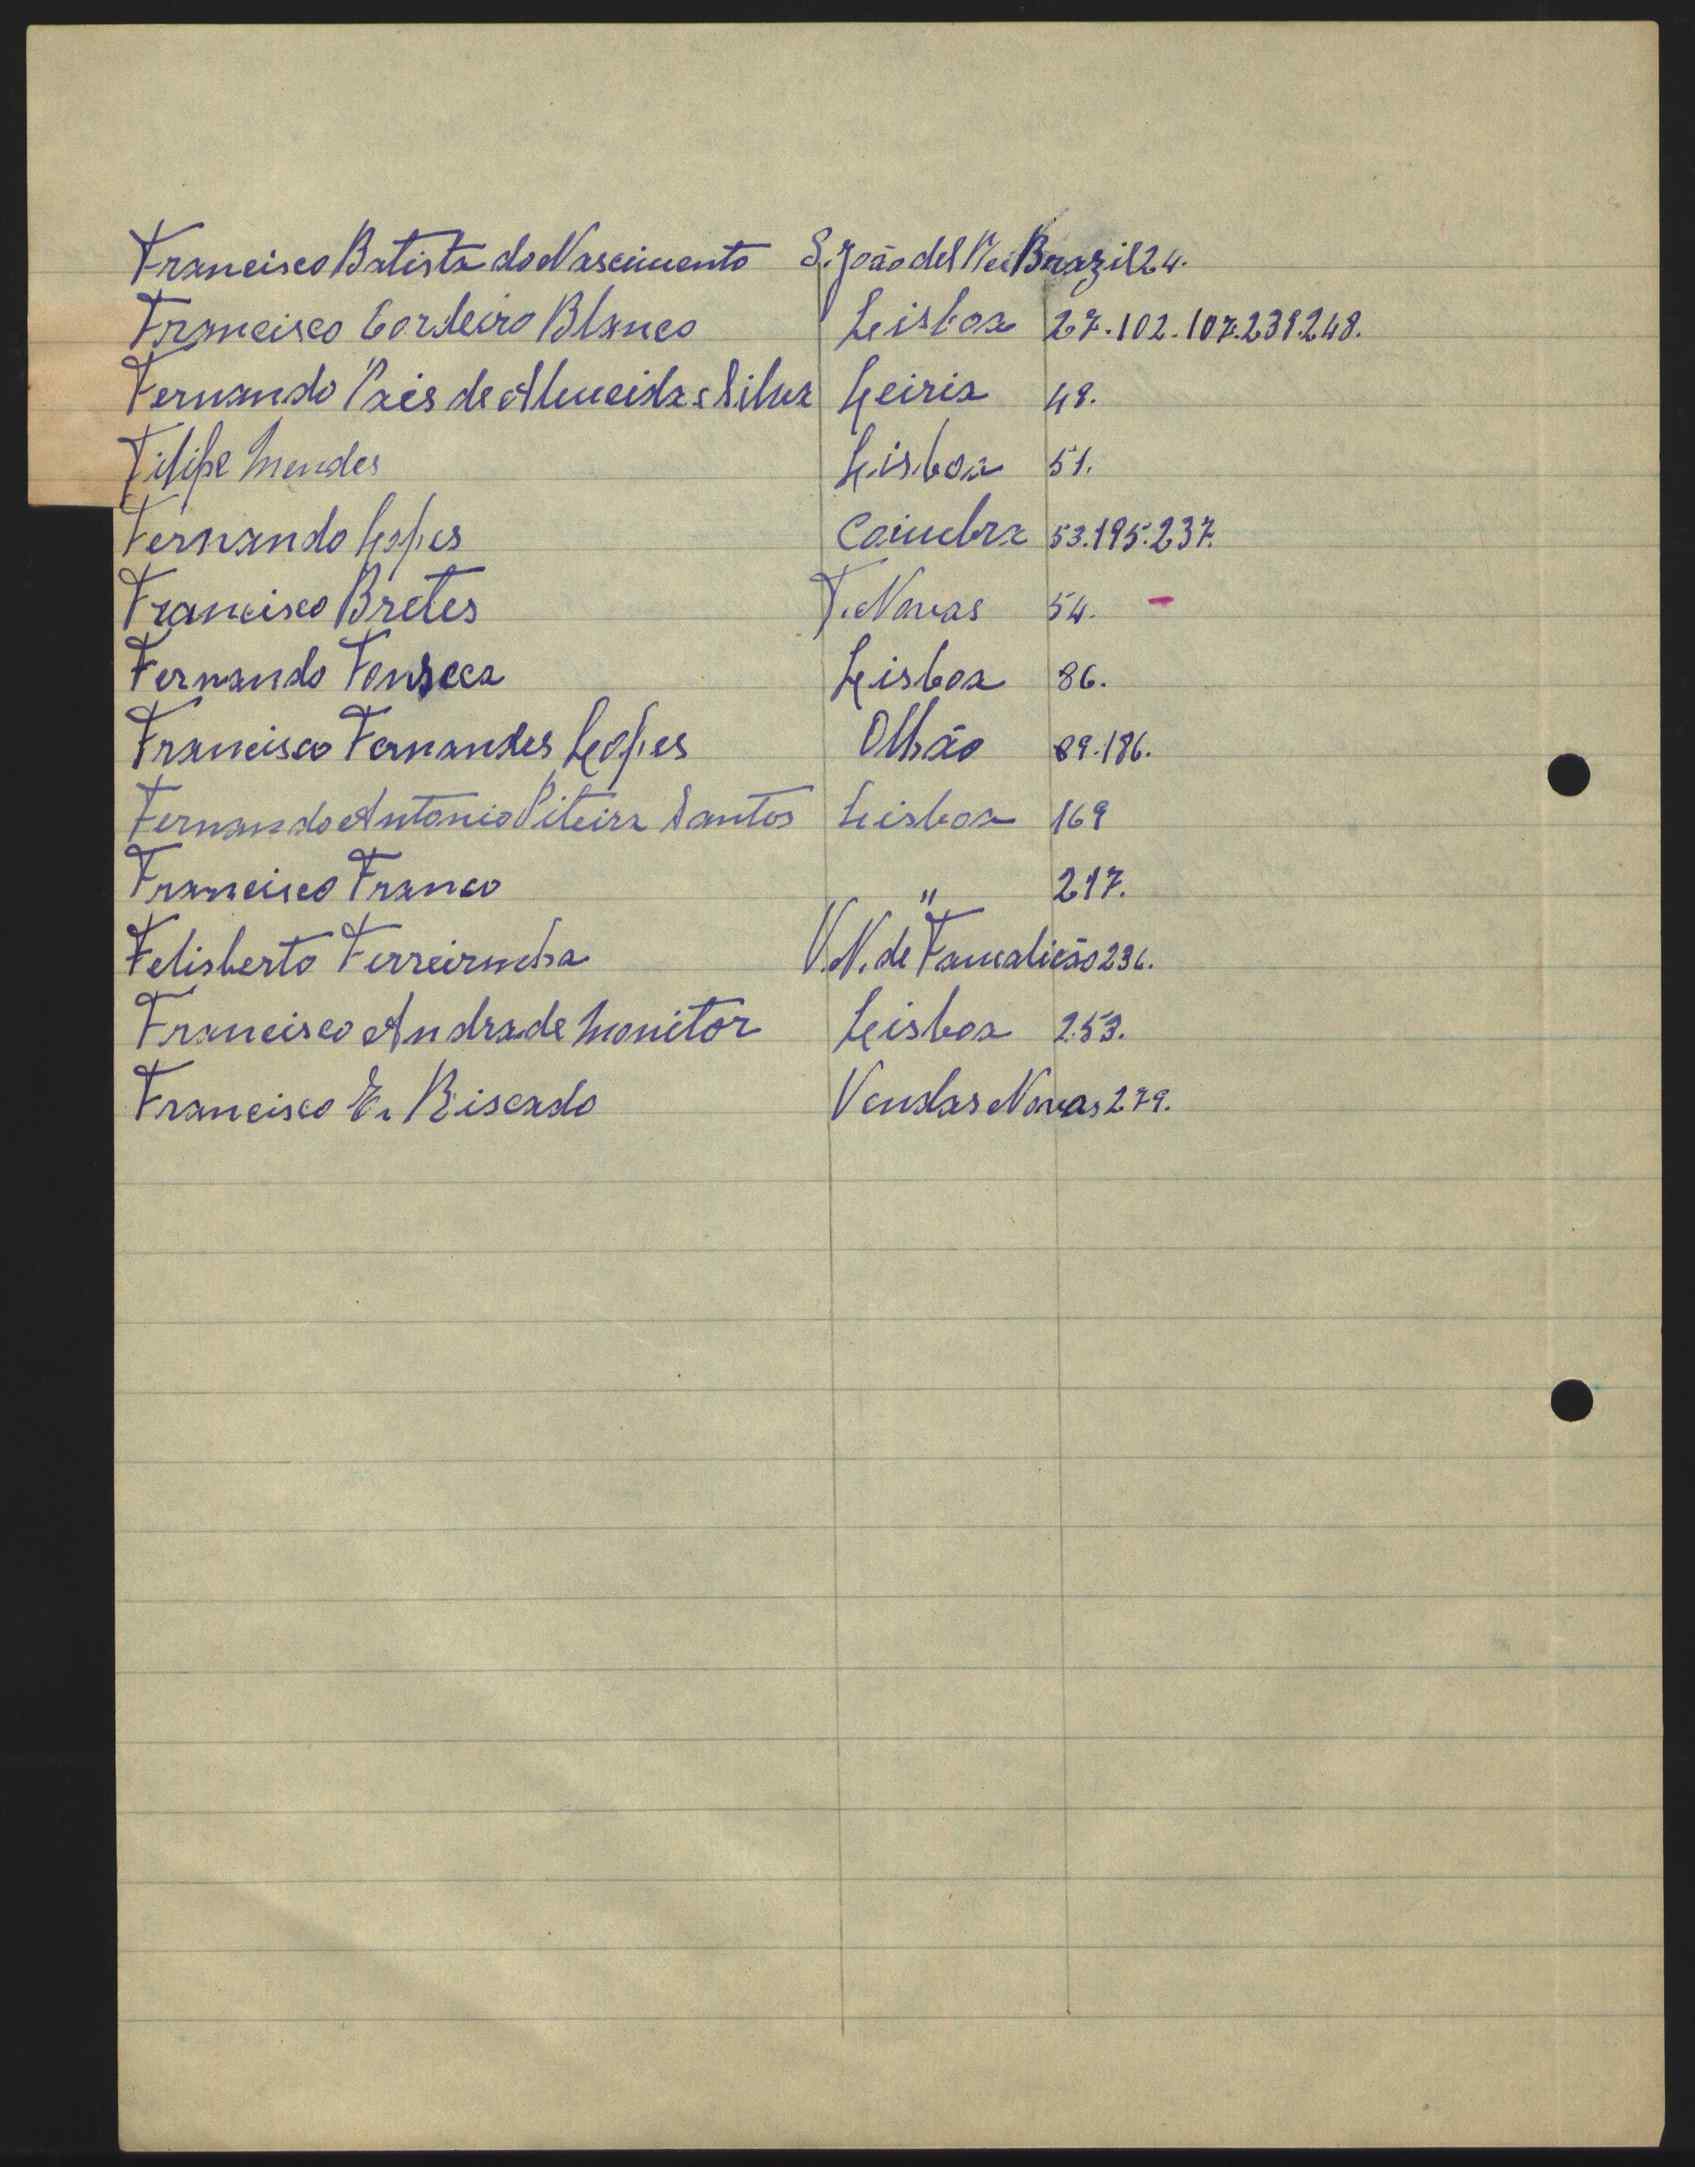 Francisco Batista do Nascimento S. João del Rei Brazil 24.
Francisco Cordeiro Blanco Lisboa 27.102.107.239.248.
Fernando Pais de Almeida e Silva Leiria 48.
Filipe Mendes Lisboa 51.
Fernando Lopes Coimbra 53.195.237.
Francisco Bretes T. Novas 54. -
Fernando Fonseca Lisboa 86.
Francisco Fernandes Lopes Olhão 89.186.
Fernando Antonio Piteira Santos Lisboa 169
Francisco Franco " 217.
Felisberto Ferreirinha V. N. de Famalicão 236.
Francisco Andrade Monitor Lisboa 253.
Francisco E. Riscado Vendas Novas 279.